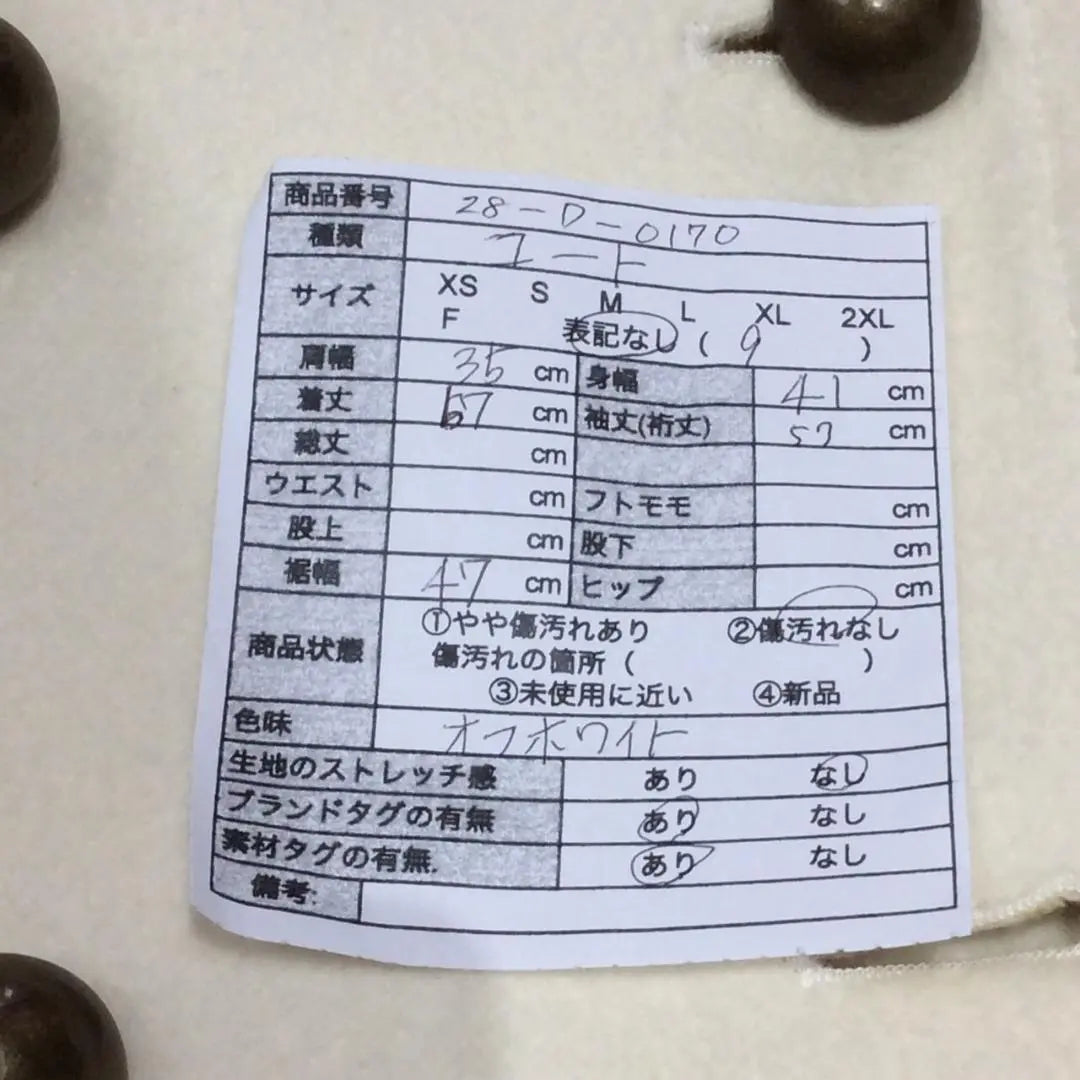 商品番号 28-D-0170
種類 コート
サイズ XS S M L XL 2XL
F 表記なし ( 9 )
肩幅 35 cm 身幅 41 cm
着丈 cm 袖丈(裄丈) 57 cm
総丈 cm
ウエスト cm フトモモ cm
股上 cm 股下 cm
裾幅 47 cm ヒップ cm
商品状態 ①やや傷汚れあり ②傷汚れなし
傷汚れの箇所 ( )
③未使用に近い ④新品
色味 オフホワイト
生地のストレッチ感 あり なし
ブランドタグの有無 あり なし
素材タグの有無. あり なし
備考: